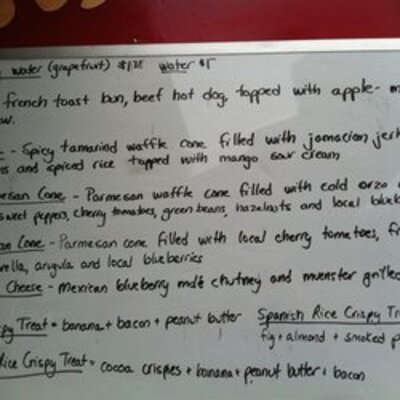 water (grapefruit) $1.25 water $1
french toast bun, beef hot dog, topped with apple-
- Spicy tamarind waffle cone filled with jamacian jerk
and spiced rice topped with mango sour cream
Cone - Parmesan waffle cone filled with cold orzo
sweet peppers, cherry tomatoes, green beans, hazelnuts and local
Cone - Parmesan cone filled with local cherry tomatoes,
arugula and local blueberries
Cheese - mexican blueberry molé chutney and muenster grilled
Treat = banana + bacon + peanut butter Spanish Rice Crispy
fig + almond + smoked
Rice Crispy Treat = cocoa crispies + banana + peanut butter + bacon